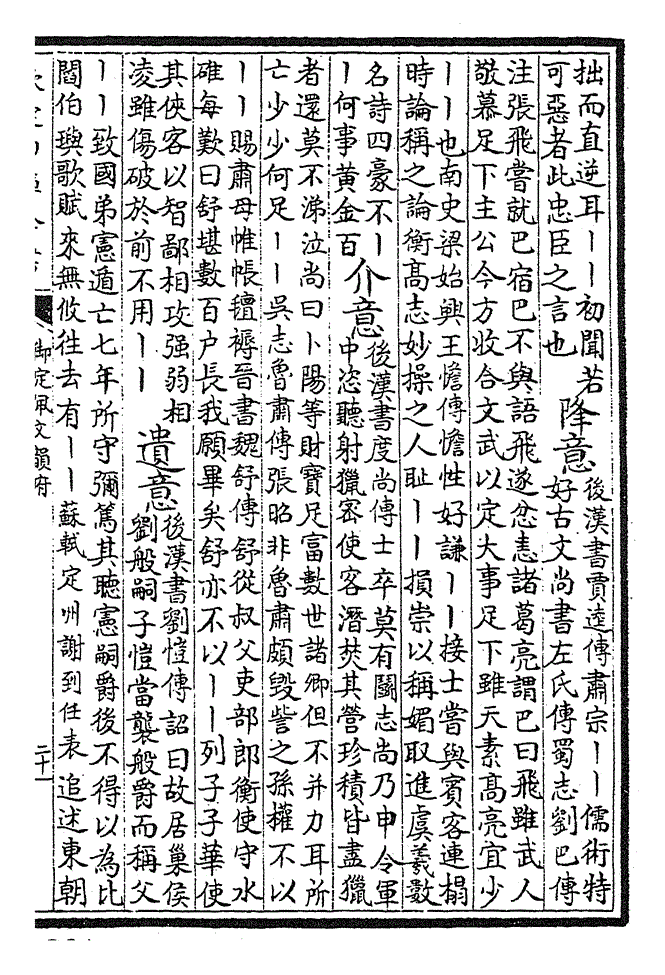 拙而直逆耳｜｜初聞若
可惡者此忠臣之言也
降意
後漢書賈逵傳肅宗｜｜儒術特
好古文尚書左氏傳蜀志劉巴傳
注張飛嘗就巴宿巴不與語飛遂忿恚諸葛亮謂巴曰飛雖武人
敬慕足下主公今方收合文武以定大事足下雖天素高亮宜少
｜｜也南史梁始興王憺傳憺性好謙｜｜接士嘗與賓客連榻
時論稱之論衡高志妙操之人恥｜｜損崇以稱媚取進虞羲數
名詩四豪不｜
｜何事黃金百
介意
後漢書度尚傳士卒莫有鬭志尚乃申令軍
中恣聽射獵密使客潛焚其營珍積皆盡獵
者還莫不涕泣尚曰卜陽等財寶足富數世諸卿但不并力耳所
亡少少何足｜｜吳志魯肅傳張昭非魯肅頗毀訾之孫權不以
｜｜賜肅母帷帳氊褥晉書魏舒傳舒從叔父吏部郎衡使守水
碓每歎曰舒堪數百户長我願畢矣舒亦不以｜｜列子子華使
其俠客以智鄙相攻强弱相
凌雖傷破於前不用｜｜
遺意
後漢書劉愷傳詔曰故居巢侯
劉般嗣子愷當襲般爵而稱父
｜｜致國弟憲遁亡七年所守彌篤其聽憲嗣爵後不得以為比
閻伯璵歌賦來無攸往去有｜｜蘇軾定州謝到任表追述東朝
御定佩文韻府
二十一